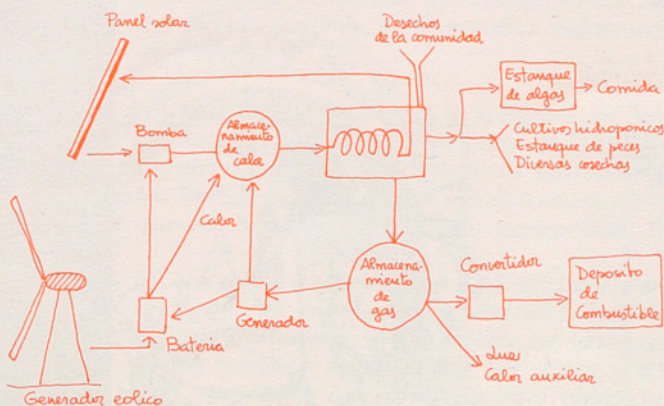 Panel solar
Desechos
de la comunidad
Estanque
de algas
Comida
Bomba
Almace-
namiento
de
calor
Cultivos hidroponicos
Estanque de peces
Diversas cosechas
Calor
Almacena-
miento
de
gas
Convertidor
Deposito
de
Combustible
Generador
Bateria
Luz
Calor auxiliar
Generador eolico